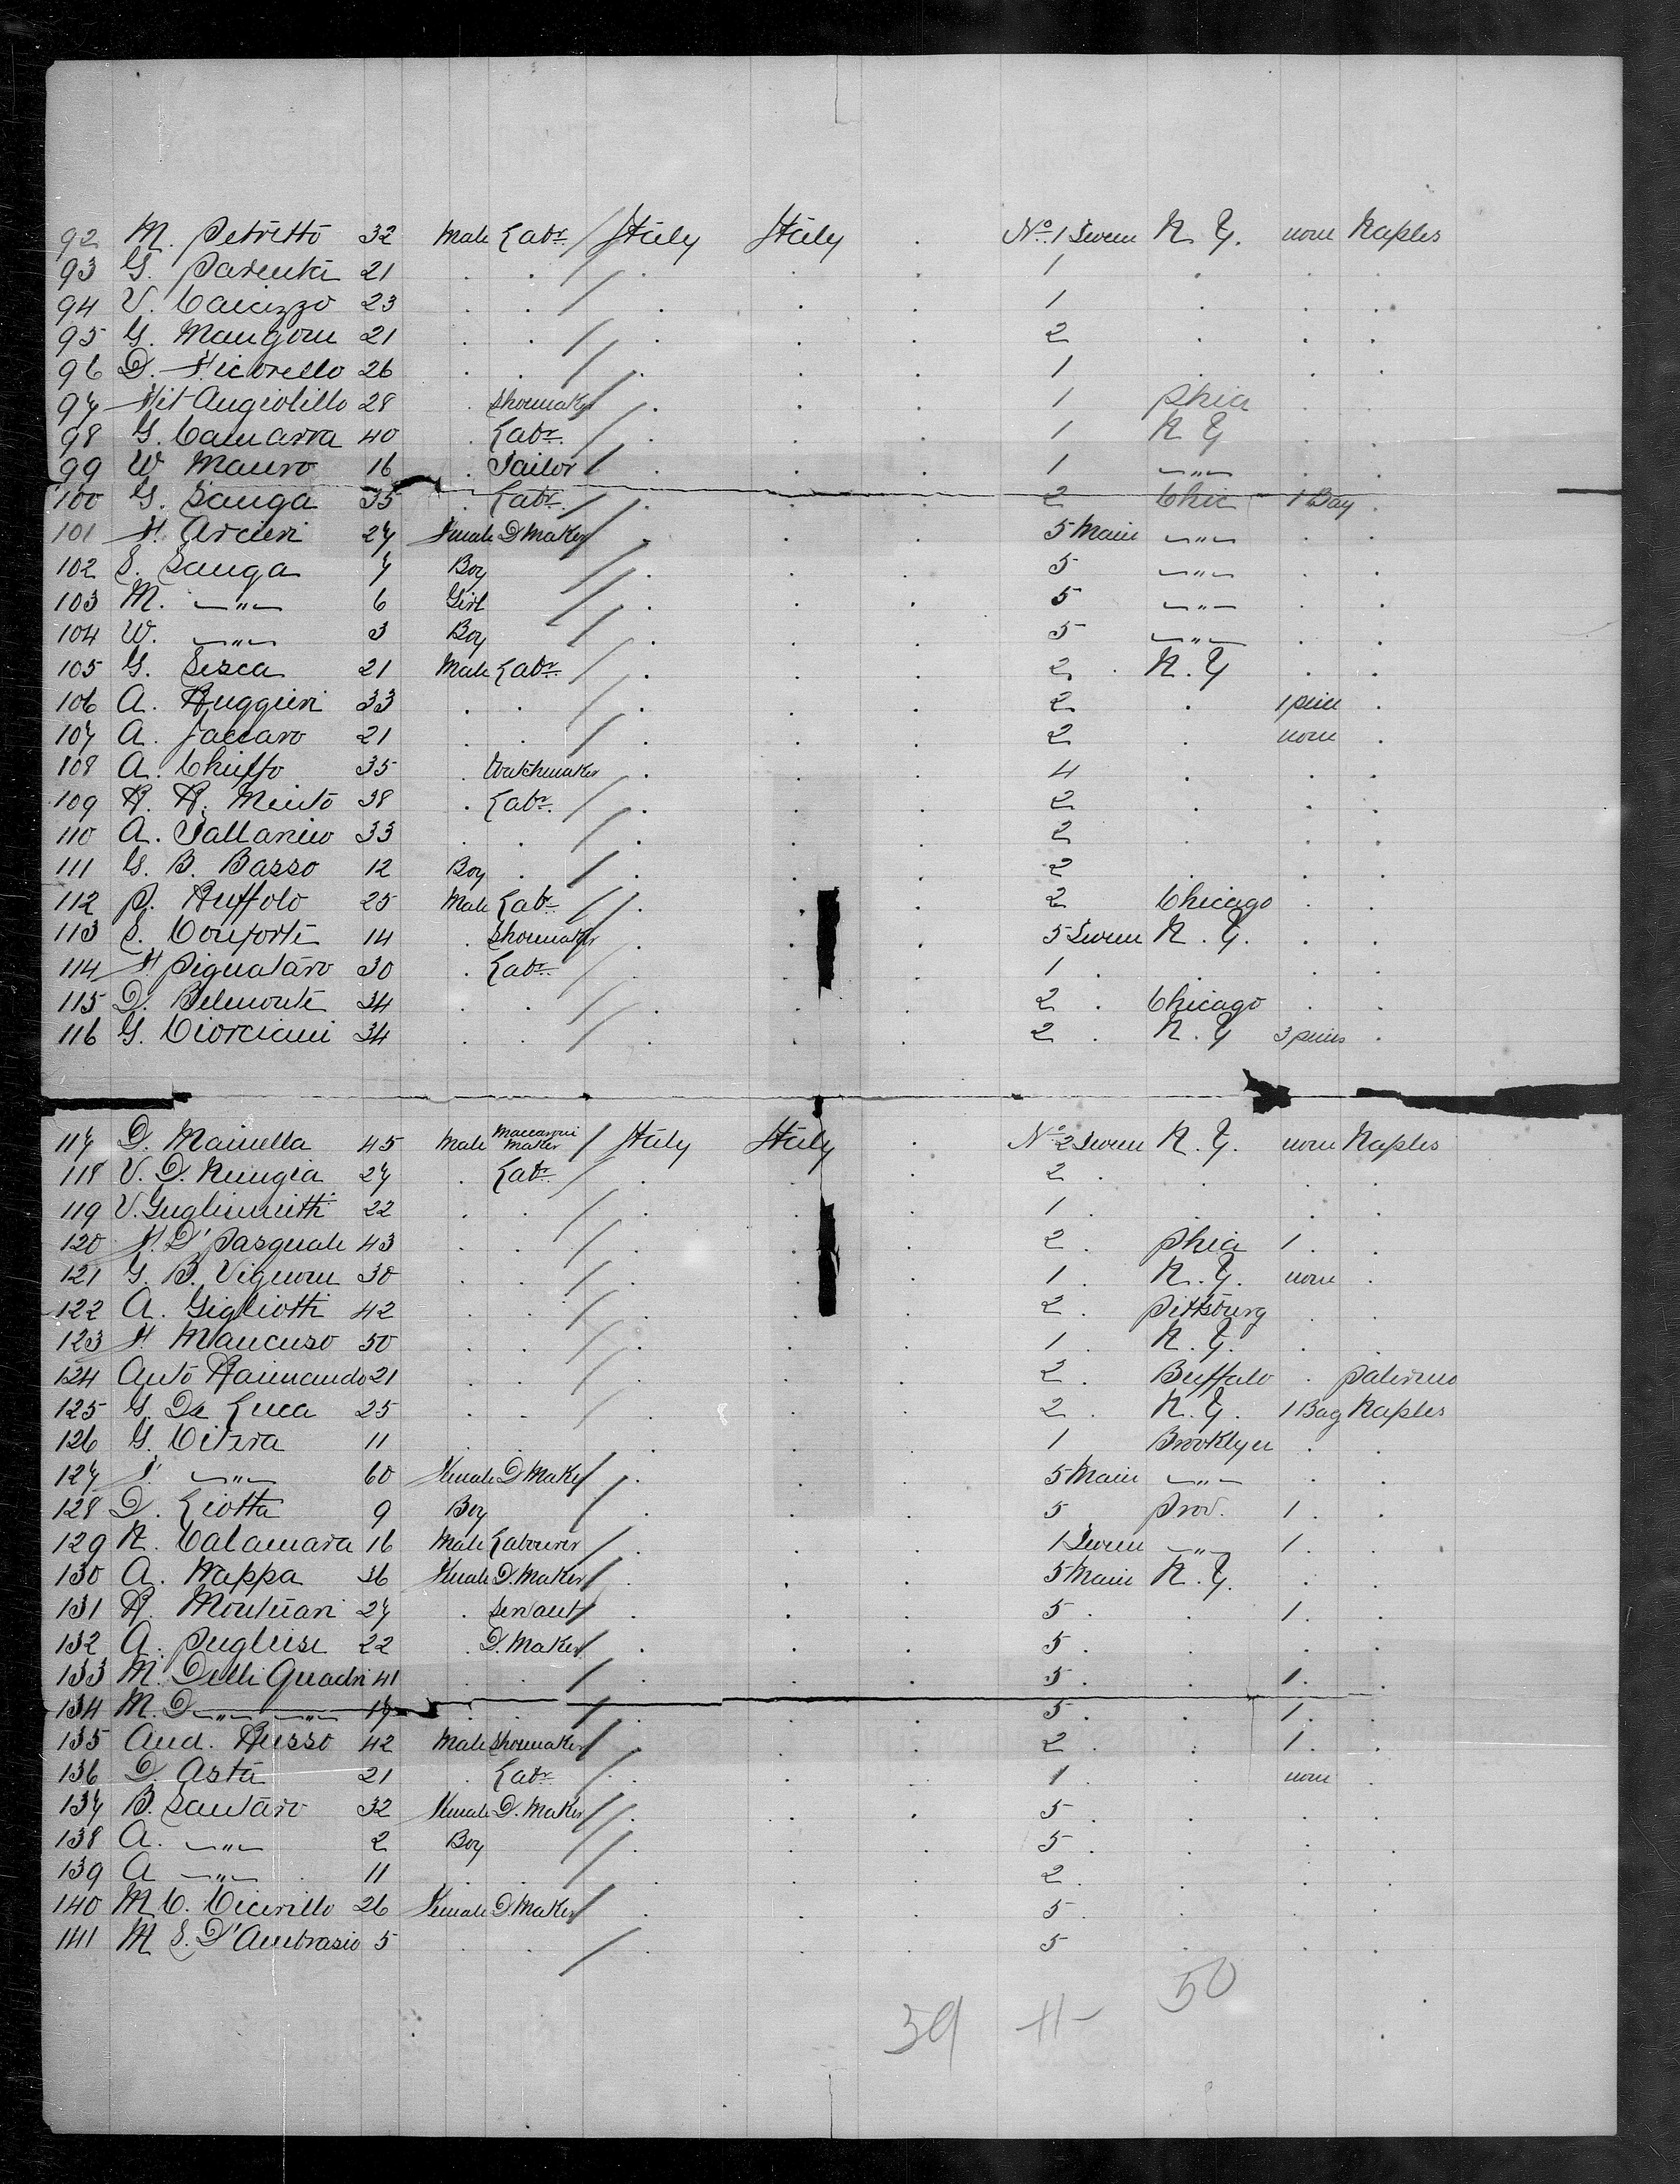 92 M. Petritto 32 Male Labr. Italy Italy . No. 1 N. Y. none Naples
93 G. Parenti 21 . . . . . 1 . . .
94 V. Caicizzo 23 . . . . . 1 . . .
95 G. Mangone 21 . . . . . 2 . . .
96 D. Ficorello 26 . . . . . 1 . . .
97 Fil Angiolillo 28 . Shoemaker . . . 1 Phia . .
98 G. Camarra 40 . Labr. . . . 1 N Y . .
99 W Mauro 16 . Tailor . . . 1 —"— . .
100 G. Sanga 35 . Labr. . . . 2 Chic 1 Bag .
101 F. Arcieri 27 Female D Maker . . . 5 Main —"— . .
102 S. Sanga 7 Boy . . . 5 —"— . .
103 M. —"— 6 Girl . . . 5 —"— . .
104 W. —"— 3 Boy . . . 5 —"— . .
105 G. Sesca 21 Male Labr. . . . 2 . N. Y . .
106 A. Ruggieri 33 . . . . . 2 . 1 piece .
107 A. Jaccaro 21 . . . . . 2 . none .
108 A. Chieffo 35 . Watchmaker . . . 4 . . .
109 R. R. Miento 38 . Labr. . . . 2 . . .
110 A. Tallarino 33 . . . . . 2 . . .
111 G. B. Basso 12 Boy . . . . 2 . . .
112 P. Ruffolo 25 Male Labr. . . . 2 Chicago . .
113 S. Conforti 14 . Shoemaker . . . 5 N. Y. . .
114 F. Pignataro 30 . Labr. . . . 1 . . . .
115 D. Belmonte 34 . . . . . 2 . Chicago . .
116 G. Ciorciani 34 . . . . . 2 . N. Y 3 pieces .
117 D. Mainella 45 Male Maccaroni Maker Italy Italy . No. 2 N. Y. none Naples
118 V. D. Nungia 27 . Labr. . . . 2 . . . .
119 V. Guglimietti 22 . . . . . 1 . . . .
120 F. D'Pasquale 43 . . . . . 2 . Phia 1 . .
121 G. B. Vignone 30 . . . . . 1 . N. Y. none .
122 A. Gigliotti 42 . . . . . 2 . Pittsburg . .
123 F. Mancuso 50 . . . . . 1 . N. Y. . .
124 Anto Raimando 21 . . . . . 2 . Buffalo . Palermo
125 G. De Luca 25 . . . . . 2 . N. Y. 1 Bag Naples
126 G. Citera 11 . . . . . 1 Brooklyn . .
127 —"— 60 Female D Maker . . . 5 Main —"— . .
128 D. Liotta 9 Boy . . . 5 Prov. 1 . .
129 N. Calamara 16 Male Labourer . . . 1 —"— 1 . .
130 A. Nappa 36 Female D. Maker . . . 5 Main N. Y. . .
131 R. Montuari 27 . Servant . . . 5 . . 1. .
132 A. Pugliese 22 . D. Maker . . . 5 . . . .
133 M. Delli Quadri 41 . . . . . 5 . . 1. .
134 M. D —"— —"— 17 . . . . . 5 . . 1. .
135 And. Russo 42 Male Shoemaker . . . 2 . . 1. .
136 D. Asta 21 . Labr. . . . 1 . . none .
137 B. Santaro 32 Female D. Maker . . . 5 . . . .
138 A. —"— 2 Boy . . . 5 . . . .
139 A —"— 11 . . . . . 2 . . . .
140 M C. Cicirillo 26 Female D Maker . . . 5 . . . .
141 M S. D'Ambrasio 5 . . . . . 5 . . .
50
39 H-